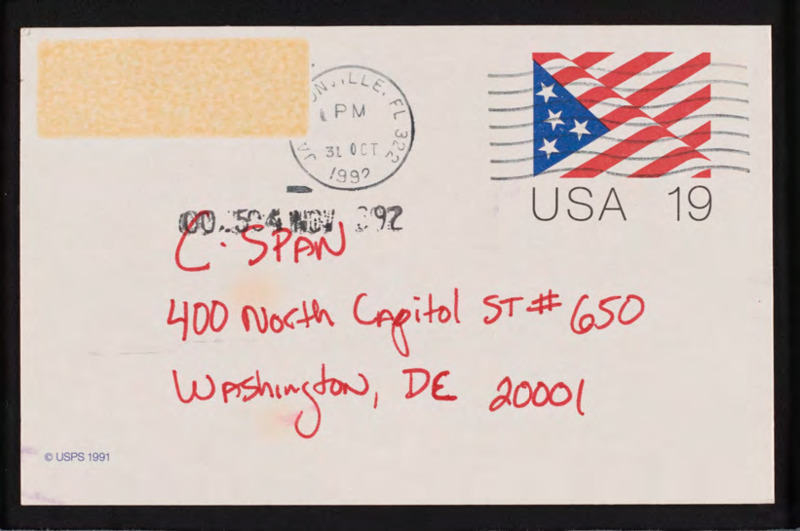 NVILLE, FL 322
PM
31 OCT
1992
JA
USA 19
NOV 92
C-SPAN
400 North Capitol ST # 650
Washington, DE 20001
© USPS 1991